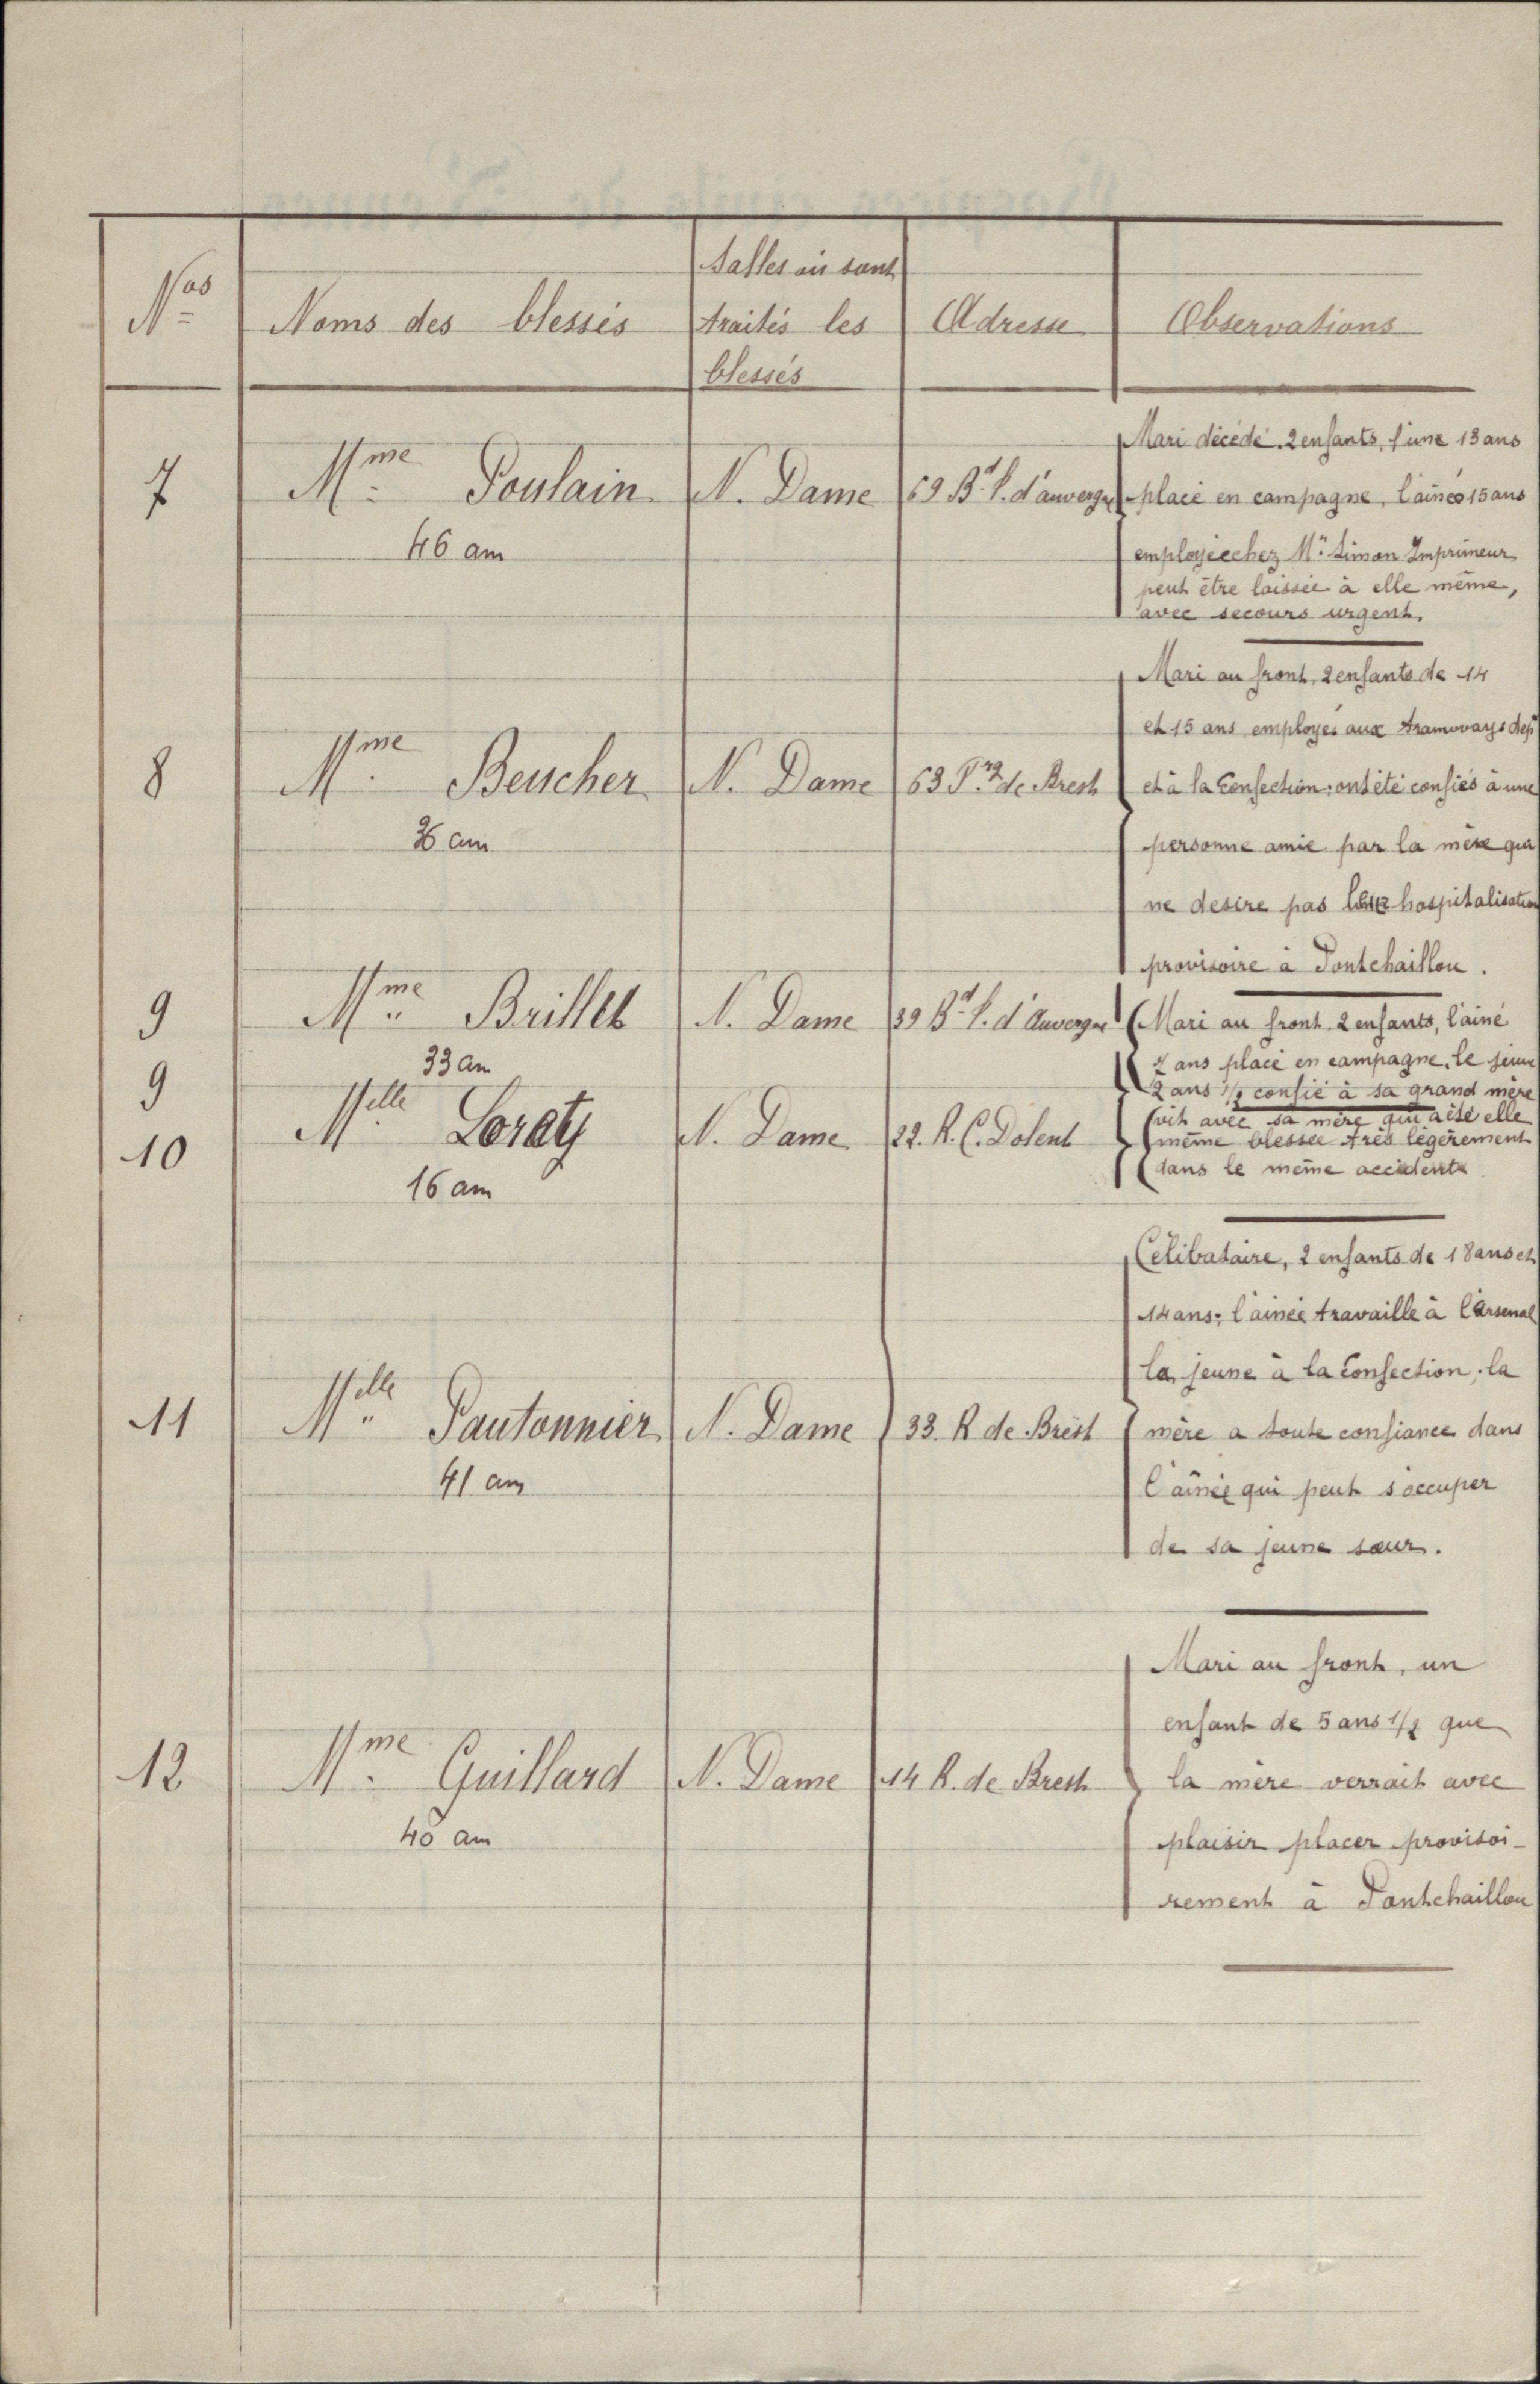 Nos Noms des blessés Salles où sont traités les blessés Adresse Observations
7 Mme Poulain N. Dame 69 Bd L. d'auvergne
46 ans
Mari décédé. 2 enfants, l'une 13 ans
placé en campagne, l'ainée 15 ans
employée chez Mr. Simon Imprimeur
peut être laissée à elle même,
avec secours urgent.
8 Mme Beucher N. Dame 63 Frg de Brest
36 ans
Mari au front, 2 enfants de 14
et 15 ans employés aux tramways
et à la Confection; ont été confiés à une
personne amie par la mère qui
ne desire pas leur hospitalisation
provisoire à Pontchaillou.
9 Mme Brillet N. Dame 39 Bd L. d'Auvergne
33 ans
Mari au front 2 enfants, l'ainé
7 ans placé en campagne, le jeune
2 ans 1/2 confié à sa grand mère
9
10 Melle Loraty N. Dame 22. R. C. Dolent
16 ans
vit avec sa mère qui a été elle
même blessée très légèrement
dans le même accident.
11 Melle Pautonnier N. Dame 33. R de Brest
41 ans
Célibataire, 2 enfants de 18 ans et
14 ans; l'ainée travaille à l'Arsenal
la jeune à la Confection; la
mère a toute confiance dans
l'aînée qui peut s'occuper
de sa jeune sœur.
12 Mme Guillard N. Dame 14 R. de Brest
40 ans
Mari au front, un
enfant de 5 ans 1/2 que
la mère verrait avec
plaisir placer provisoi-
rement à Pontchaillou